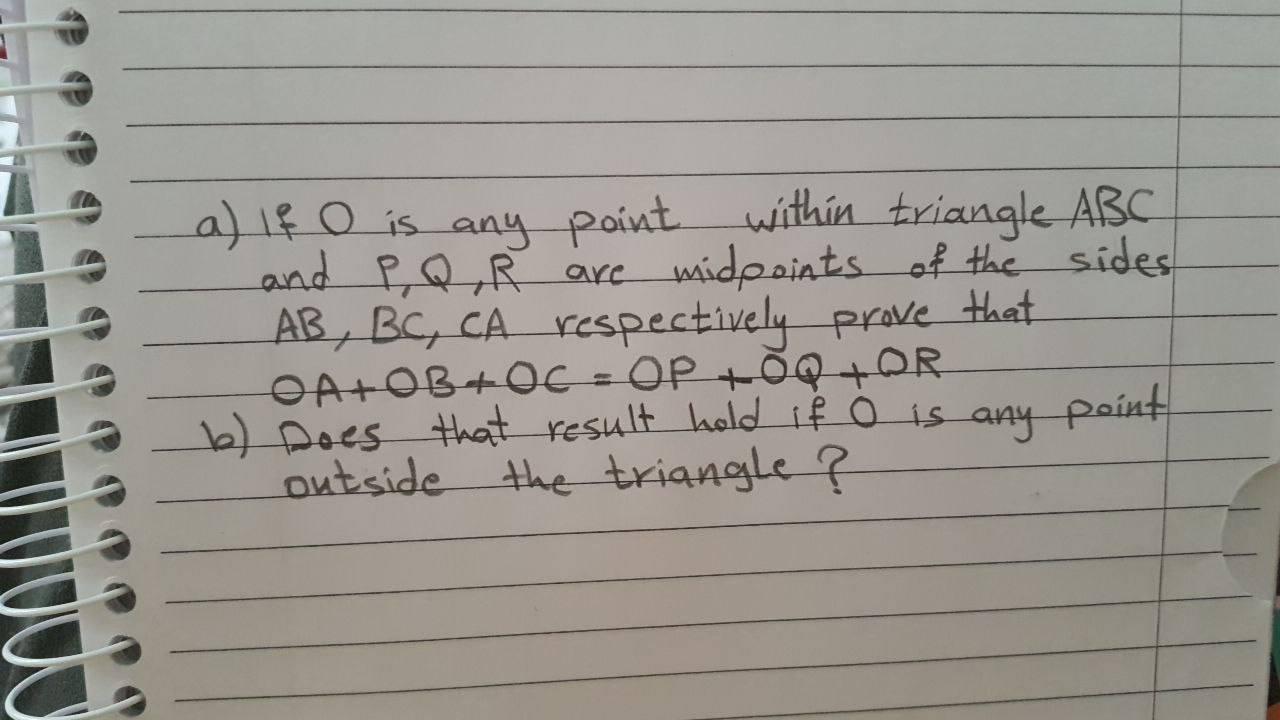 a) If O is any point within triangle ABC
and P, Q, R are midpoints of the sides
AB, BC, CA respectively prove that
OA + OB + OC = OP + OQ + OR
b) Does that result hold if O is any point
outside the triangle ?